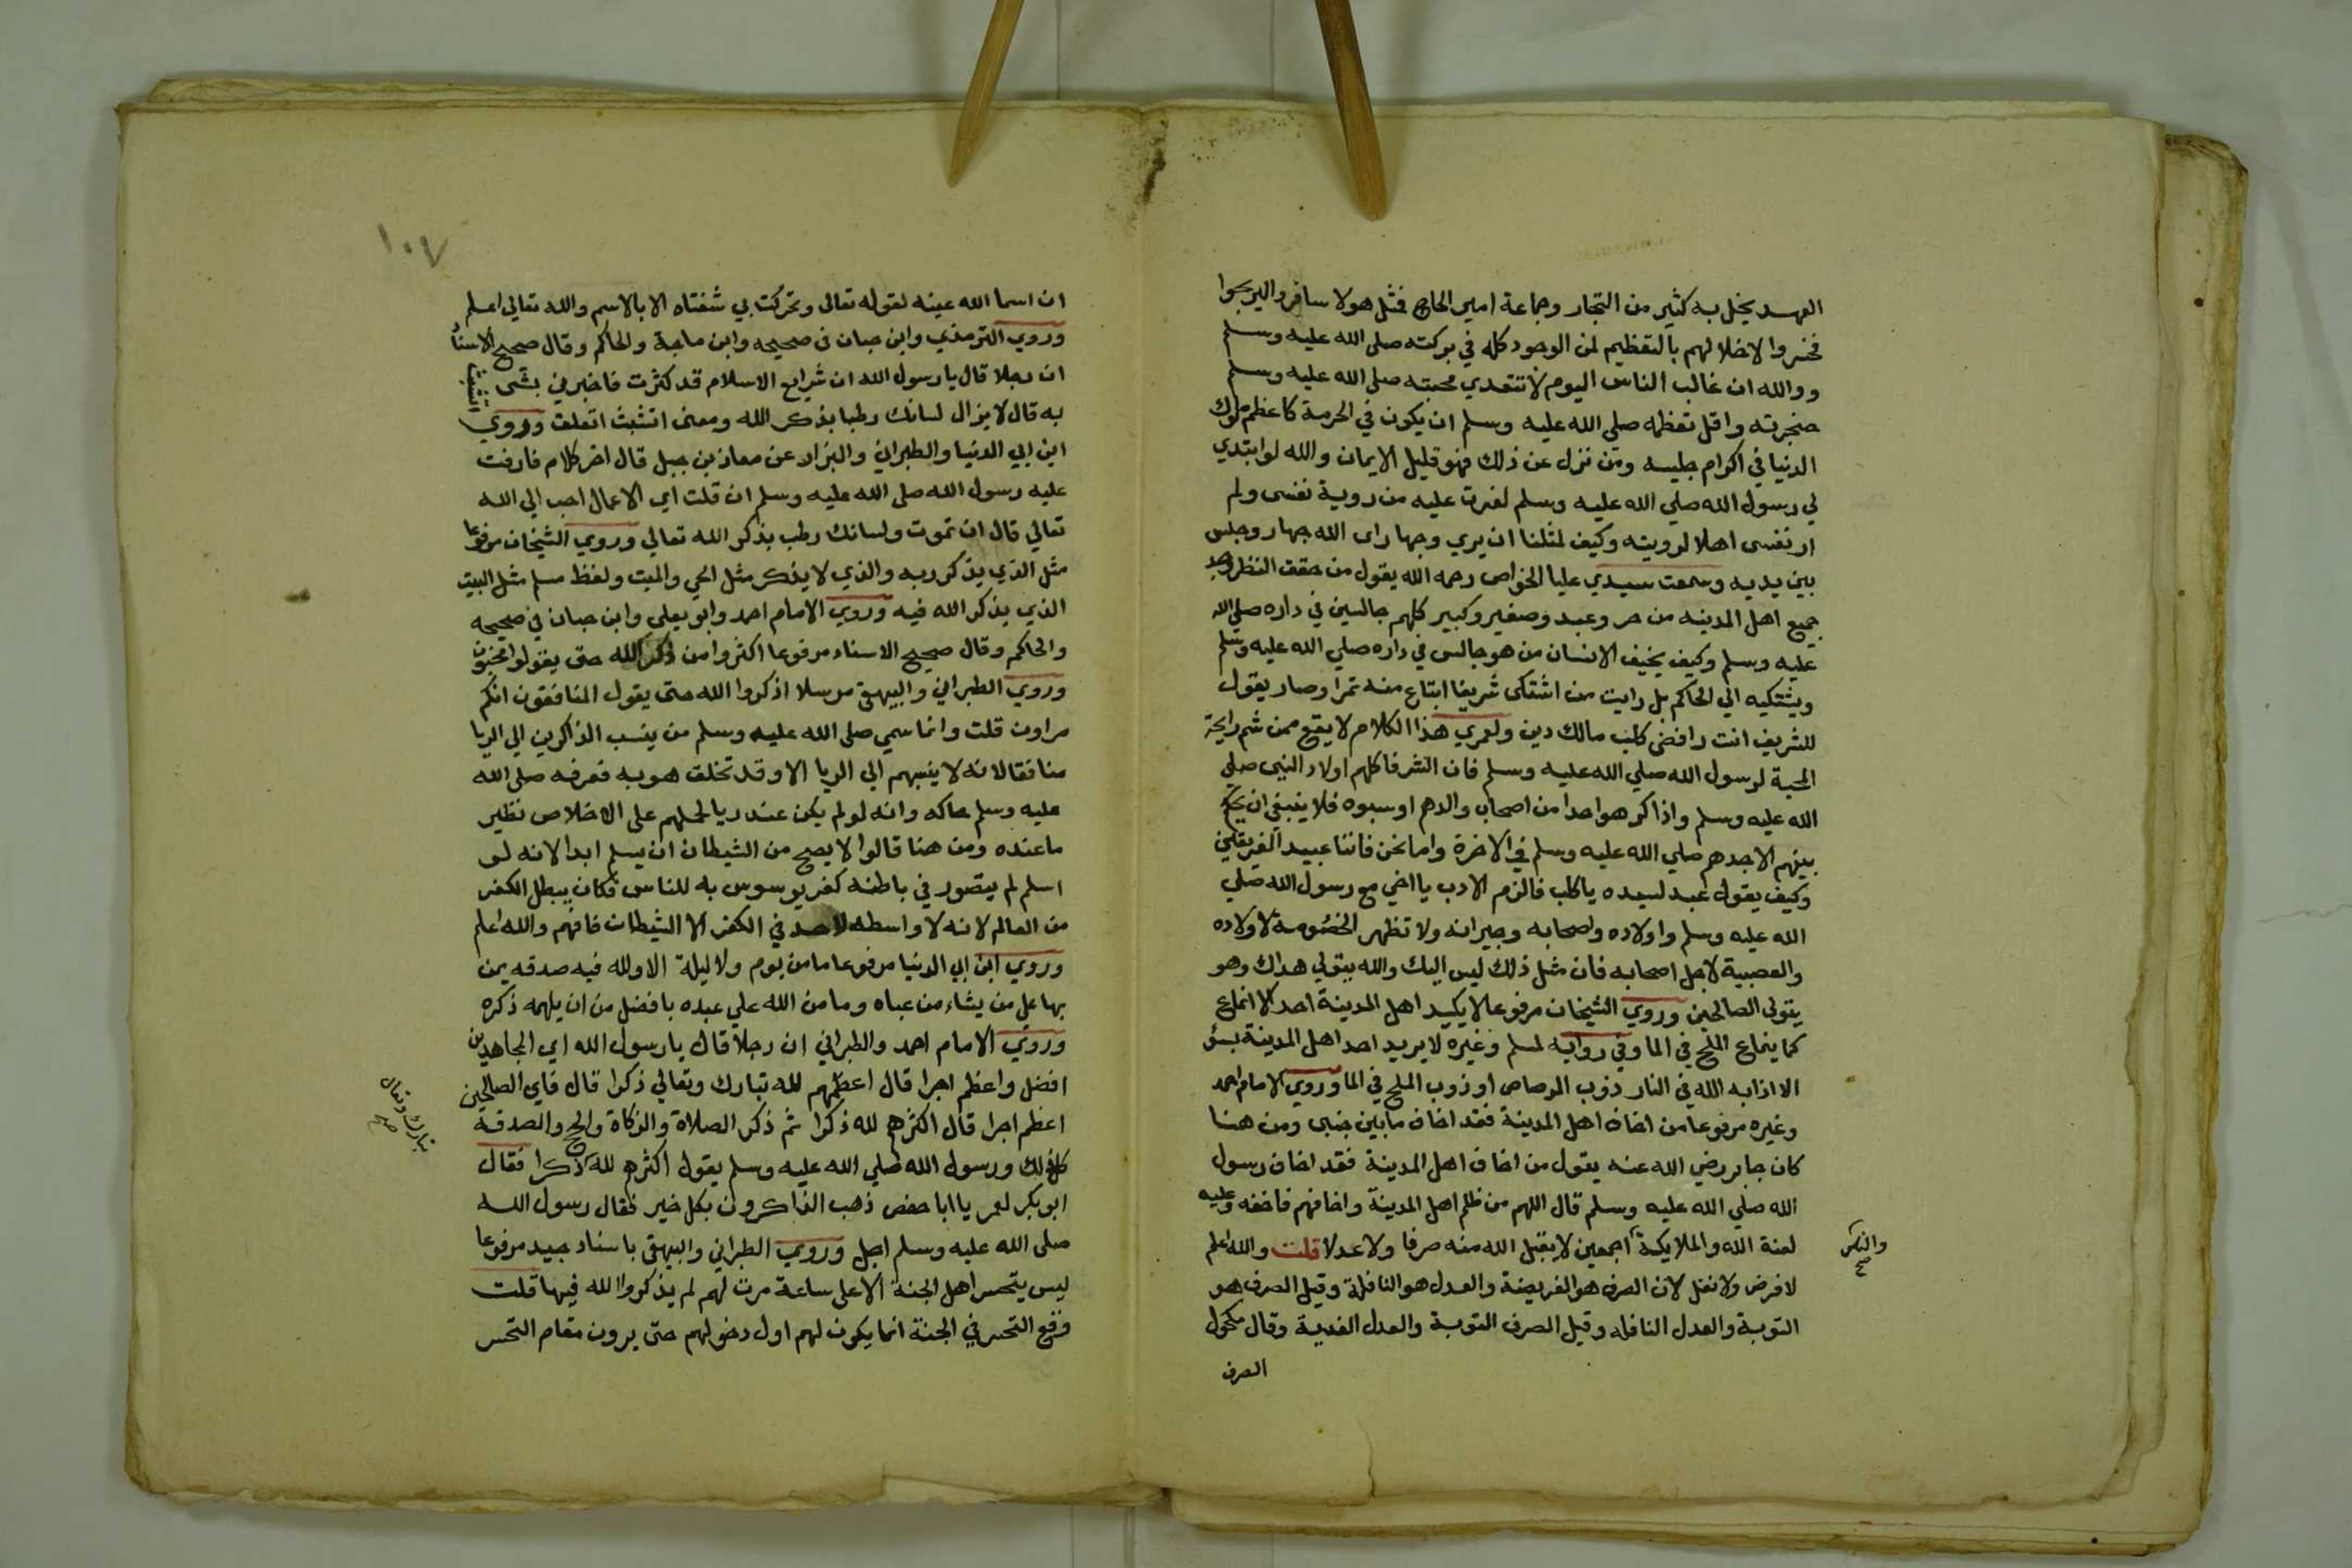 العهد يخل به كثير من التجار وجماعة امير الحاج فمثل هولا سافروا ليربحوا
فخسروا لاخلالهم بالتعظيم لمن الوجود كله في بركته صلى الله عليه وسلم
ووالله ان غالب الناس اليوم لا تتعدي محبته صلى الله عليه وسلم
حنجرته واقل تعظيمه صلى الله عليه وسلم ان يكون في الحرمة كاعظم ملوك
الدنيا في اكرام جليسه ومن نزل عن ذلك فهو قليل الايمان والله لو ابتدي
لي رسول الله صلي الله عليه وسلم لغرت عليه من روية نفسى ولم
ار نفسى اهلا لرويته وكيف لمثلنا ان يري وجها راى الله جهار وجلس
بين يديه وسمعت سيدي عليا الخواص رحمه الله يقول من حقق النظر وجد
جميع اهل المدينه من حر وعبد وصغير وكبير كلهم جالسين في داره صلى الله
عليه وسلم وكيف يخيف الانسان من هو جالس في داره صلي الله عليه وسلم
ويشتكيه الي الحاكم بل رايت من اشتكى شريفا ابتاع منه تمرا وصار يقول
للشريف انت رافضى كلب مالك دين ولعمري هذا الكلام لا يقع ممن شم رايحة
المحبة لرسول الله صلي الله عليه وسلم فان الشرفا كلهم اولاد النبى صلى
الله عليه وسلم واذا كرهوا احدا من اصحاب والدهم اوسبوه فلا ينبغي ان يحكم
بينهم الاجدهم صلي الله عليه وسلم في الاخرة واما نحن فاننا عبيد الفريقين
وكيف يقول عبد لسيده يا كلب فالزم الادب يا اخي مع رسول الله صلي
الله عليه وسلم واولاده واصحابه وجيرانه ولا تظهر الخصومة لاولاده
والعصبية لاجل اصحابه فان مثل ذلك ليس اليك والله يتولي هداك وهو
يتولى الصالحين وروي الشيخان مرفوعا لا يكيد اهل المدينة احد الا انماع
كما ينماع الملح في الما وفي روايه لمسلم وغيره لا يريد احد اهل المدينة بسؤ
الا اذابه الله في النار ذوب الرصاص او ذوب الملح في الما وروي الامام احمد
وغيره مرفوعا من اخاف اهل المدينة فقد اخاف ما بين جنبى ومن هنا
كان جابر رضي الله عنه يقول من اخاف اهل المدينة فقد اخاف رسول
الله صلي الله عليه وسلم قال اللهم من ظلم اهل المدينة واخافهم فاخفه وعليه
لعنة الله والملايكة اجمعين لا يقبل الله منه صرفا ولا عدلا قلت والله اعلم
والناس
صح
لا فرض ولا نفل لان الصرف هو الفريضة والعدل هو النافلة وقيل الصرف هو
التوبة والعدل النافله وقيل الصرف التوبة والعدل الفدية وقال مكحول
الصرف
١٠٧
ان اسما الله عينه لقوله تعالى وتحركت بي شفتاه الا بالاسم والله تعالي اعلم
وروي الترمذي وابن حبان في صحيحه وابن ماجة والحاكم وقال صحيح الاسناد
ان رجلا قال يا رسول الله ان شرايع الاسلام قد كثرت فاخبرني بشى اتشبث
به قال لا يزال لسانك رطبا بذكر الله ومعنى اتشبث اتعلق وروي
ابن ابي الدنيا والطبراني والبزار عن معاذ بن جبل قال اخر كلام فارقت
عليه رسول الله صلى الله عليه وسلم ان قلت اي الاعمال احب الي الله
تعالي قال ان تموت ولسانك رطب بذكر الله تعالي وروي الشيخان مرفوعا
مثل الذي يذكر ربه والذي لا يذكر مثل الحي والميت ولفظ مسلم مثل البيت
الذي يذكر الله فيه وروي الامام احمد وابو يعلي وابن حبان في صحيحه
والحاكم وقال صحيح الاسناد مرفوعا اكثروا من ذكر الله حتى يقولوا مجنون
وروي الطبراني والبيهقى مرسلا اذكروا الله حتى يقول المنافقون انكم
مراون قلت وانما سمي صلى الله عليه وسلم من ينسب الذاكرين الي الريا
منافقا لانه لا ينسبهم الي الريا الا وقد تخلق هو به فعرفه صلى الله
عليه وسلم حاله وانه لو لم يكن عنده ريا لحملهم على الاخلاص نظير
ما عنده ومن هنا قالوا لا يصح من الشيطان ان يسلم ابدا لانه لو
اسلم لم يتصور في باطنه كفر يوسوس به للناس فكان يبطل الكفر
من العالم لانه لا واسطه لاحد في الكفر الا الشيطان فافهم والله اعلم
وروي ابن ابي الدنيا مرفوعا ما من يوم ولا ليلة الا ولله فيه صدقه يمن
بها على من يشاء من عباه وما من الله علي عبده بافضل من ان يلهمه ذكره
وروي الامام احمد والطبراني ان رجلا قال يا رسول الله اي المجاهدين
افضل واعظم اجرا قال اعظمهم لله تبارك وتعالي ذكرا قال فاي الصالحين
اعظم اجرا قال اكثرهم لله ذكرا ثم ذكر الصلاة والزكاة والحج والصدقة
تبارك وتعالى
صح
كل ذلك ورسول الله صلي الله عليه وسلم يقول اكثرهم لله ذكرا فقال
ابو بكر لعمر يا ابا حفص ذهب الذاكرون بكل خير فقال رسول الله
صلى الله عليه وسلم اجل وروي الطبراني والبيهقى باسناد جيد مرفوعا
ليس يتحسر اهل الجنة الا على ساعة مرت لهم لم يذكروا الله فيها قلت
وقع التحسر في الجنة انما يكون لهم اول دخولهم حتى يرون مقام التحسر